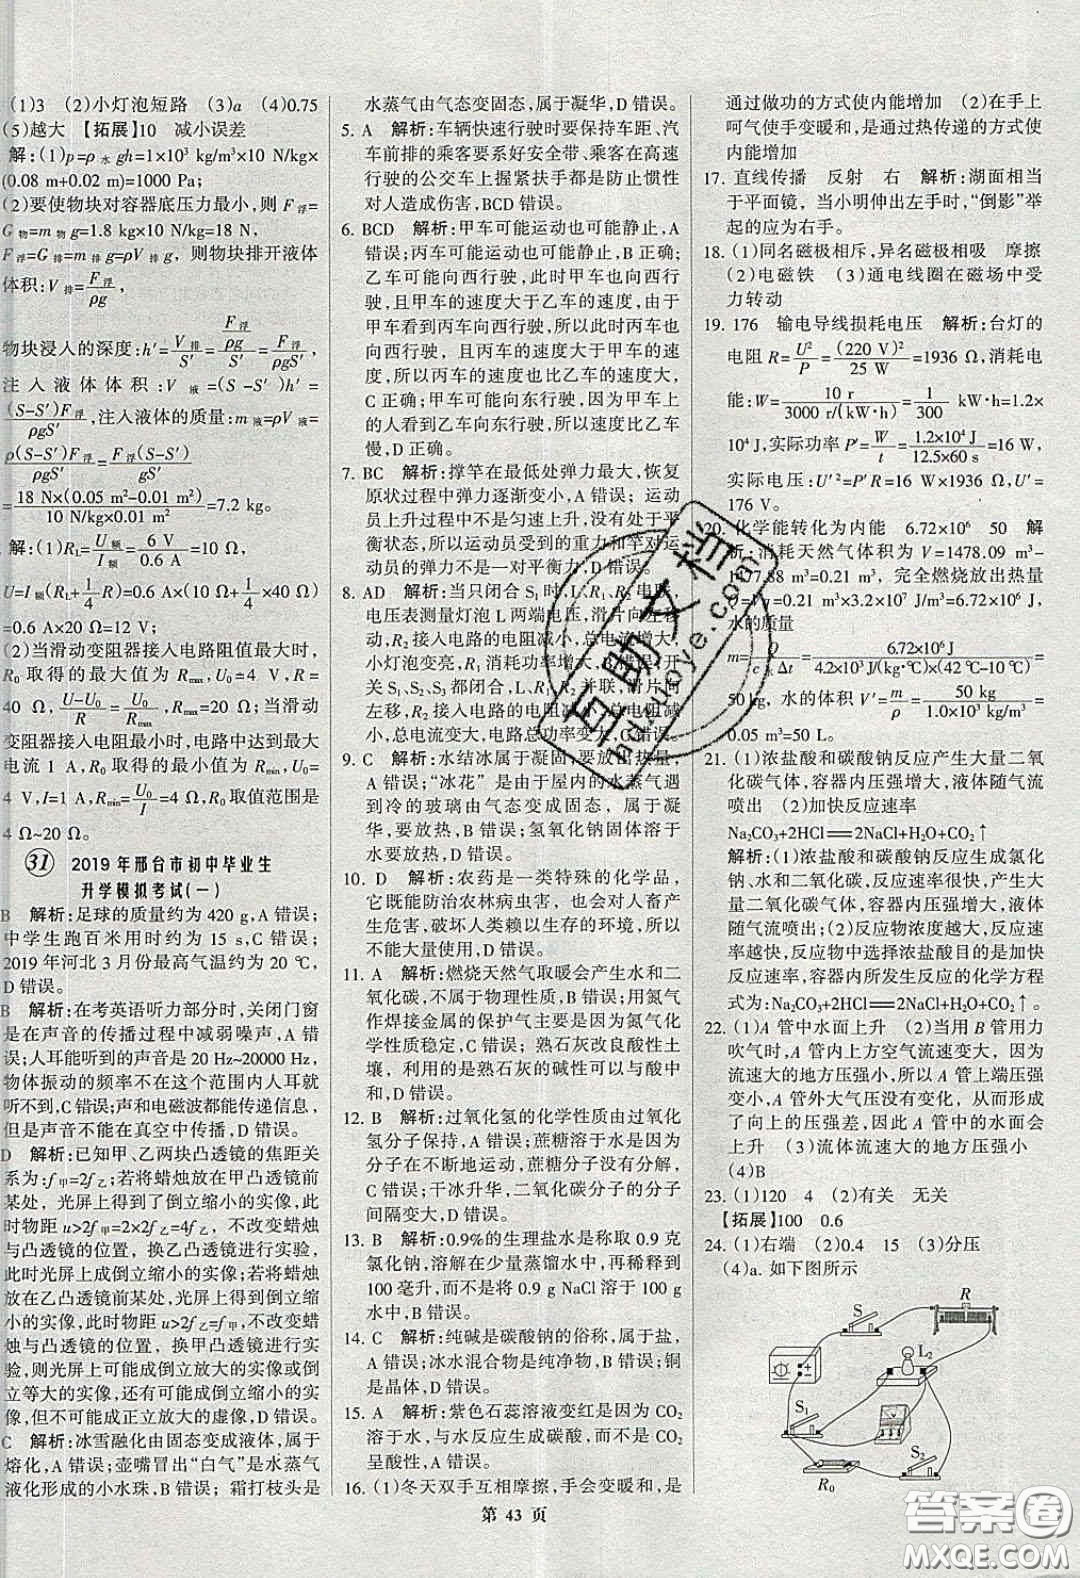 (1)3 (2)小灯泡短路 (3)a (4)0.75
(5)越大 【拓展】10 减小误差
解:(1)p=ρ水gh=1×10³ kg/m³×10 N/kg×
(0.08 m+0.02 m)=1000 Pa;
(2)要使物块对容器底压力最小,则 F浮=
G物=m物g=1.8 kg×10 N/kg=18 N,
F浮=G排=m排g=ρV排g,则物块排开液体
体积:V排=F浮/ρg,
物块浸入的深度:h′=V排/S′=(F浮/ρg)/S′=F浮/ρgS′,
注入液体体积:V液=(S-S′)h′=
(S-S′)F浮/ρgS′,注入液体的质量:m液=ρV液=
ρ(S-S′)F浮/ρgS′=(S-S′)F浮/gS′
=18 N×(0.05 m²-0.01 m²)/(10 N/kg×0.01 m²)=7.2 kg。
解:(1)R₁=U额/I额=6 V/0.6 A=10 Ω,
U=I额(R₁+1/4 R)=0.6 A×(10 Ω+1/4×40 Ω)
=0.6 A×20 Ω=12 V;
(2)当滑动变阻器接入电路阻值最大时,
R₀取得的最大值为Rmax,U₀=4 V,R=
40 Ω,(U-U₀)/R=U₀/Rmax,Rmax=20 Ω;当滑动
变阻器接入电阻最小时,电路中达到最大
电流 1 A,R₀取得的最小值为Rmin,U₀=
4 V,I=1 A,Rmin=U₀/I=4 Ω,R₀取值范围是
4 Ω~20 Ω。
31 2019年邢台市初中毕业生
升学模拟考试(一)
B 解析:足球的质量约为 420 g,A 错误;
中学生跑百米用时约为 15 s,C 错误;
2019年河北3月份最高气温约为 20 ℃,
D 错误。
B 解析:在考英语听力部分时,关闭门窗
是在声音的传播过程中减弱噪声,A 错
误;人耳能听到的声音是 20 Hz~20000 Hz,
物体振动的频率不在这个范围内人耳就
听不到,C错误;声和电磁波都能传递信息,
但是声音不能在真空中传播,D 错误。
D 解析:已知甲、乙两块凸透镜的焦距关
系为:f甲=2f乙;若将蜡烛放在甲凸透镜前
某处,光屏上得到了倒立缩小的实像,此
时物距 u>2f甲=2×2f乙=4f乙,不改变蜡烛
与凸透镜的位置,换乙凸透镜进行实验,
此时光屏上成倒立缩小的实像;若将蜡烛
放在乙凸透镜前某处,光屏上得到了倒立
缩小的实像,此时物距 u>2f乙=f甲,不改变蜡烛
与凸透镜的位置,换甲凸透镜进行实
验,则光屏上可能成倒立放大的实像或倒
立等大的实像,还有可能成倒立缩小的实
像,但不可能成正立放大的虚像,D 错误。
C 解析:冰雪融化由固态变成液体,属于
熔化,A 错误;壶嘴冒出“白气”是水蒸气
液化形成的小水珠,B 错误;霜打枝头是
水蒸气由气态变固态,属于凝华,D 错误。
5. A 解析:车辆快速行驶时要保持车距、汽
车前排的乘客要系好安全带、乘客在高速
行驶的公交车上握紧扶手都是防止惯性
对人造成伤害,BCD 错误。
6. BCD 解析:甲车可能运动也可能静止,A
错误;丙车可能运动也可能静止,B 正确;
乙车可能向西行驶,甲车和丙车可能向西
行驶,且甲车的速度大于乙车的速度,由
于甲车看到丙车向西行驶,所以丙车可能
向西行驶,且丙车的速度大于甲车的速
度,所以丙车的速度也可能比乙车大,
C 正确;甲车可能向东行驶,乙车看到路边
的人向东行驶,所以甲车可能比乙车
慢,D 正确。
7. BC 解析:撑竿在最低处弹力最大,恢复
原状过程中弹力逐渐变小,A 错误;运动
员上升过程中不是匀速上升,没有处于平
衡状态,所以运动员的重力和竿对运动
员的弹力不是一对平衡力,D 错误。
8. AD 解析:当只闭合S₁时,R₁、R₂串联,
电压表测量灯泡 L 两端电压,滑片向右移
动,R₂接入电路的电阻减小,总电流变大,
小灯泡变亮,R₁消耗功率增大,B 错误;开
关S₁、S₂都闭合时,L、R₂并联,滑片向
左移,R₂接入电路的电阻变大,电流减
小,总电流变大,电路总功率变大,C 错误。
9. C 解析:水结冰属于凝固,要放出热量,
A 错误;“冰花”是由于屋内的水蒸气遇
到冷的玻璃由气态变成固态,属于凝华,
B 错误;氢氧化钠固体溶于水放热,D
错误。
10. D 解析:农药是一类特殊的化学品,
它既能防治农林病虫害,也会对人畜产
生危害,破坏人类赖以生存的环境,所以
不能大量使用,D 错误。
11. A 解析:燃烧天然气取暖会产生水和二
氧化碳,不属于物理性质,B 错误;用氮气
作焊接金属的保护气主要是因为氮气化
学性质稳定,C 错误;熟石灰改良酸性土
壤,利用的是熟石灰的碱性可以与酸中
和,D 错误。
12. B 解析:过氧化氢的化学性质由过氧化
氢分子保持,A 错误;蔗糖溶于水是分子
在不断地运动,蔗糖不会变成糖分子,C
错误;干冰升华,二氧化碳分子的分子
间间隔变大,D 错误。
13. B 解析:0.9%的生理盐水是称取 0.9 克
氯化钠溶解在少量蒸馏水中,再稀释至
100 毫升,而不是将 0.9 g NaCl 溶于 100 g
水中,B 错误。
14. C 解析:纯碱是碳酸钠的俗称,属于盐,
A 错误;冰水混合物是纯净物,B 错误;铜
是晶体,D 错误。
15. A 解析:紫色石蕊溶液变红是因为CO₂
溶于水,与水反应生成碳酸,而不是CO₂
呈酸性,A 错误。
16. (1)冬天双手互相摩擦,手会变暖和,是
通过做功的方式使内能增加 (2)在手上
呵气使手变暖和,是热传递的方式使
内能增加
17. 直线传播 反射 右 解析:湖面相当
于平面镜,当小明伸出左手时,“倒影”举
起的应为右手。
18. (1)同名磁极相斥,异名磁极相吸 摩擦
(2)电磁铁 (3)通电线圈在磁场中受
力转动
19. 176 输电导线损耗电压 解析:台灯的
电阻 R=U²/P=(220 V)²/25 W=1936 Ω,消耗电
能:W=10 r/3000 r/(kW·h)=1/300 kW·h=1.2×
10⁴ J,实际功率 P′=W/t=1.2×10⁴ J/12.5×60 s=16 W,
实际电压:U′²=P′R=16 W×1936 Ω,U′=
176 V。
20. 化学能转化为内能 6.72×10⁶ 50 解
析:消耗天然气体积为 V=1478.09 m³-
1477.88 m³=0.21 m³,完全燃烧放出热量
为Q=qV=0.21 m³×3.2×10⁷ J/m³=6.72×10⁶ J,
水的质量
m=Q/c水Δt=6.72×10⁶ J/4.2×10³J/(kg·℃)×(42 ℃-10 ℃)=
50 kg,水的体积 V′=m/ρ=50 kg/1.0×10³ kg/m³=
0.05 m³=50 L。
21. (1)浓盐酸和碳酸钠反应产生大量二氧
化碳气体,容器内压强增大,液体随气流
喷出 (2)加快反应速率
Na₂CO₃+2HCl══2NaCl+H₂O+CO₂↑
解析:浓盐酸和碳酸钠反应生成氯化
钠、水和二氧化碳,反应速率快,产生大
量二氧化碳气体,容器内压强变大,液体
随气流喷出;反应物浓度越大,反应
速率越快,反应物中选择浓盐酸目的是加快反应
速率,容器内所发生反应的化学方程
式为:Na₂CO₃+2HCl══2NaCl+H₂O+CO₂↑。
22. (1)A 管中水面上升 (2)当用 B 管用力
吹气时,A 管上方空气流速变大,因为流
速变大,所以 A 管上端压强变小,而此时
A 管外大气压没有变化,从而形成
了向上的压强差,A 管中的水面会
上升 (3)流体流速大的地方压强小
(4)B
23. (1)120 4 (2)有关 无关
【拓展】100 0.6
24. (1)右端 (2)0.4 15 (3)分压
(4)a. 如下图所示
R
S
L₂
S₁
S₂
R₀
第 43 页
互助文档
huzuoye.com
答案圈
MXQE.COM